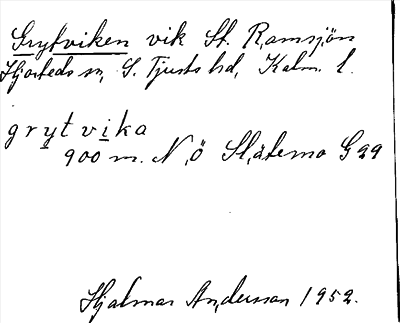 Grytviken vik St. Ramsjön
Hjorteds sn, S. Tjusts hd, Kalm. l.
grytvika
900 m. N,ö Slätemo G 29
Hjalmar Andersson 1952.